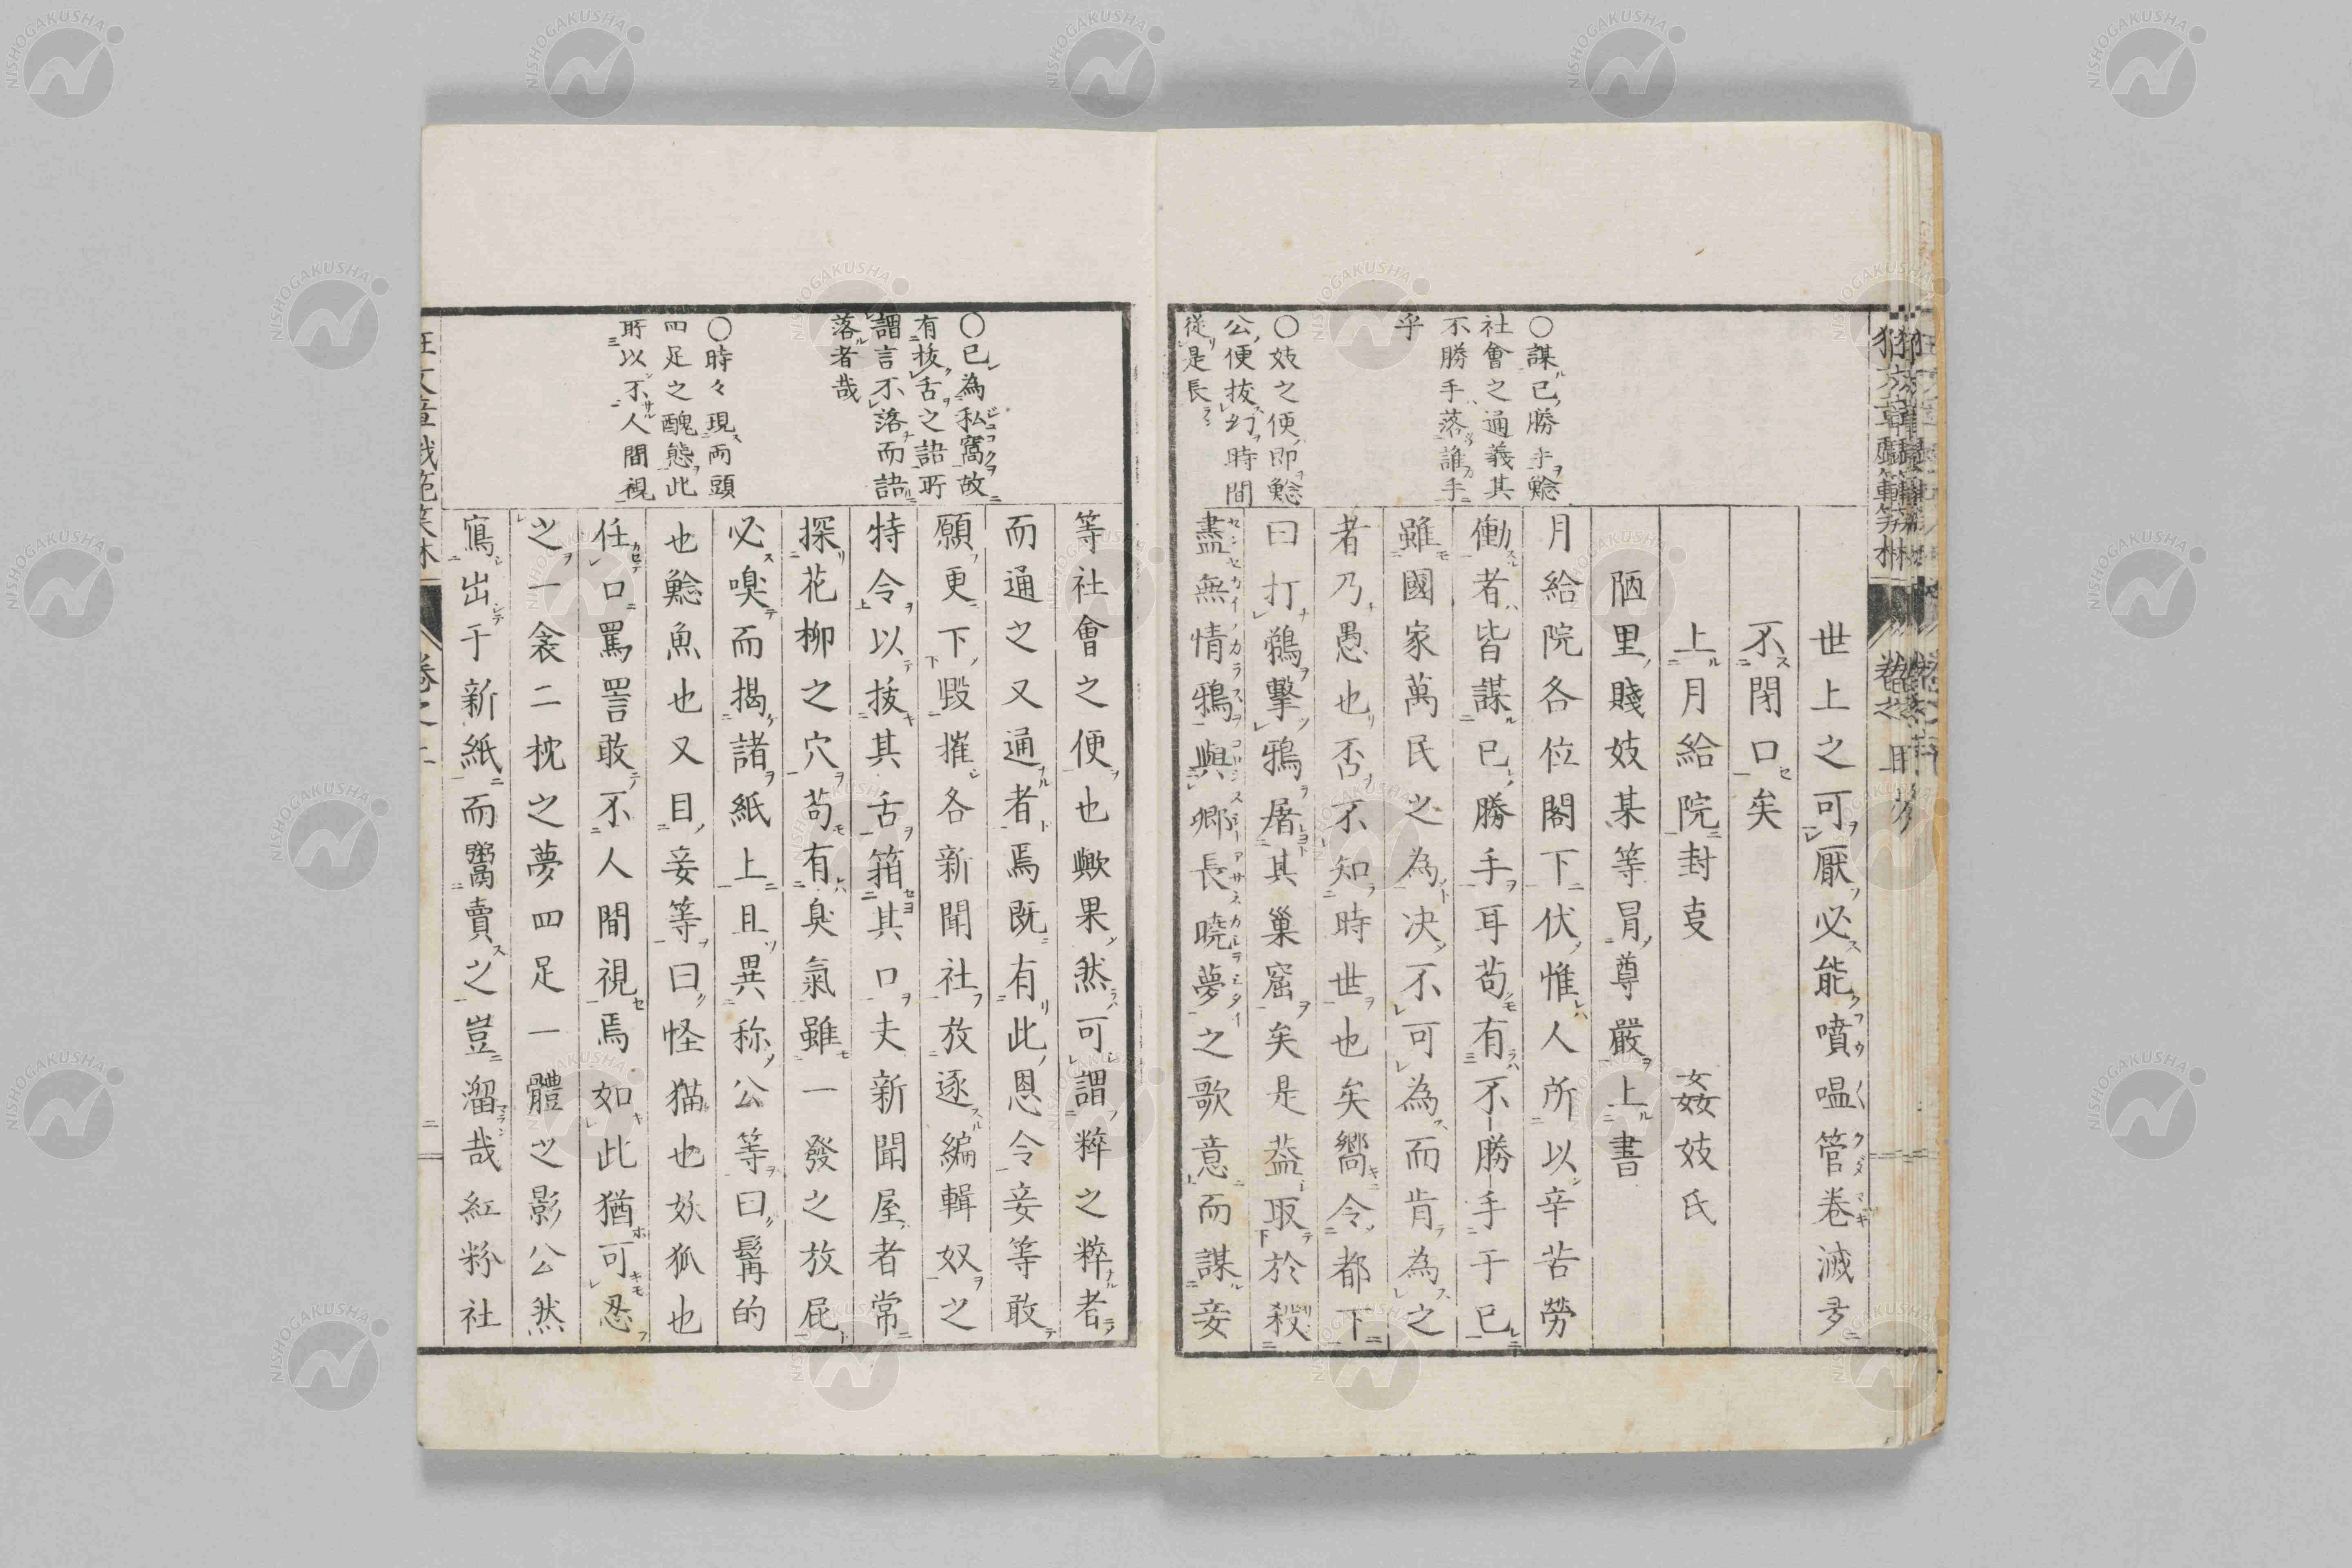 世上之可厭必能噴嗢管卷滅多
不閉口矣
上月給院封㕝 姦妓氏
陋里賤妓某等冒尊嚴上書
月給院各位閣下伏惟人所以辛苦勞
働者皆謀已勝手耳苟有不勝手于已
雖國家萬民之為决不可為而肯為之
者乃愚也否不知時世也矣嚮令都下
曰打鵜擊鴉屠其巢窟矣是葢取於殺
盡無情鴉與郷長曉夢之歌意而謀妾
○謀已勝手鯰
社會之通義其
不勝手落誰手
乎
○妓之便即鯰
公便抜幻時間
從是長
等社會之便也歟果然可謂粹之粹者
而通之又通者焉既有此恩令妾等敢
願更下毀摧各新聞社放逐編輯奴之
特令以抜其舌箝其口夫新聞屋者常
探花柳之穴苟有臭氣雖一發之放屁
必嗅而揭諸紙上且異称公等曰髯的
也鯰魚也又目妾等曰怪猫也妖狐也
任口罵詈敢不人間視焉如此猶可忍
之一衾二枕之夢四足一體之影公然
寫出于新紙而鬻賣之豈溜哉紅粉社
○已為私窩故
有抜舌之語所
謂言不落而語
落者哉
○時々現両頭
四足之醜態此
所以不人間視